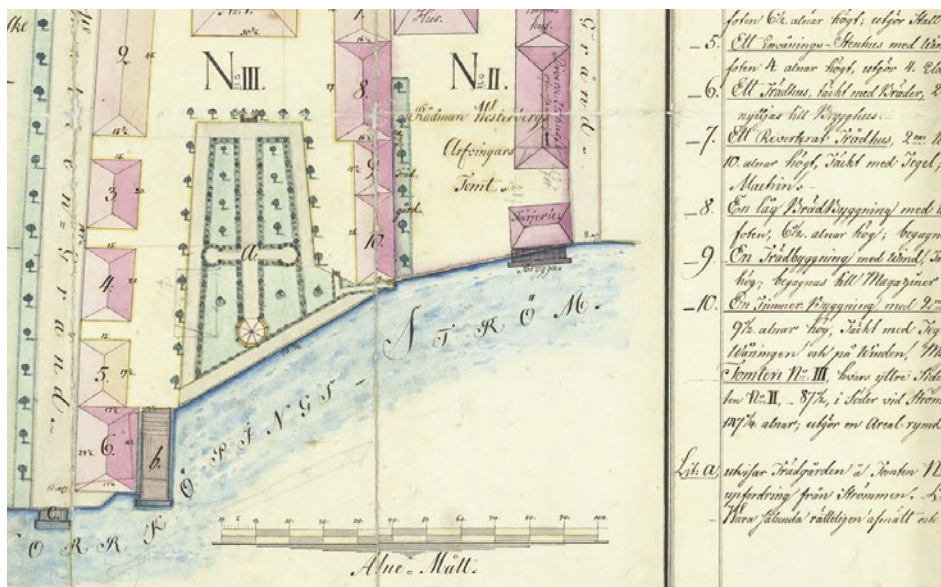 Hus.
hus.
Gränd.
N:o III.
N:o II.
Rådman Westerbergs
Arfvingars
Tomt.
Träd
gård.
Färjeri
Brygga
2.
3.
4.
5.
6.
8.
9.
10.
a.
b.
C.
Gränd.
STRÖM.
ÖPINGS-
ORRK
5. 10. 20. 30. 40. 50. 60. 70. 80. 90. 100.
Alne-Mått.
foten 6½ alnar högt; utgör Stall
5. Ett Envånings-Stenhus med
foten 4. alnar högt, utgör 4.
6. Ett Trädhus, täckt med Bräder, 2
nyttjas till Brygghus.
7. Ett Reverterat Trädhus, 2
10. alnar högt, Täckt med Tegel,
Machin.
8. En låg BrädByggning med
foten, 6½ alnar hög; begagn
9. En Trädbyggning med Wind,
hög; begagnas till Magaziner
10. En Timmer Byggning med 2
9½ alnar hög, Täckt med Teg
Wåningen och på Winden,
Tomten No III, hvars yttre Sid
ten No II, 87½, i Söder vid Ström
alnar; utgör en Areal rymd
Lit: a, utvisar Trädgården å Tomten N
uppfordring från Strömmen.
Wara Sålunda rätteligen afmätt och